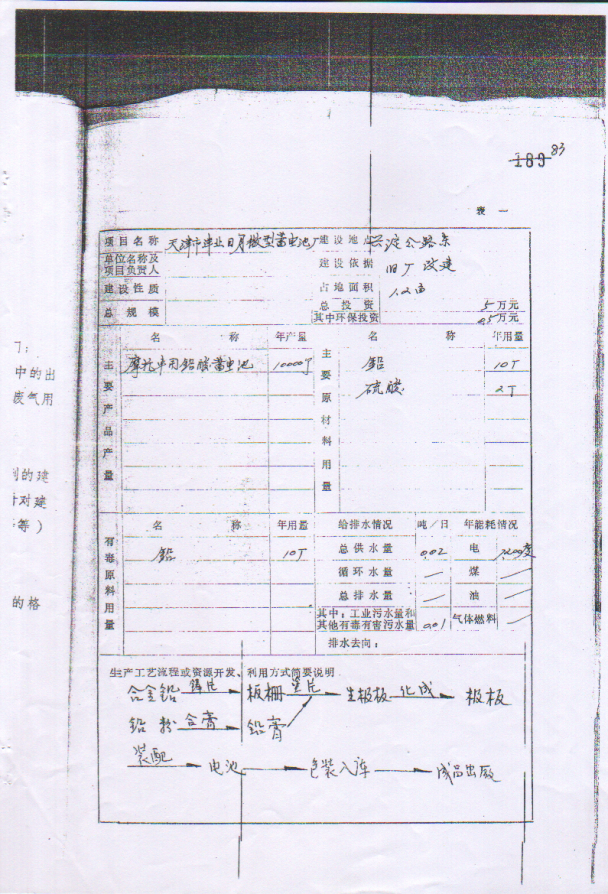 189 83
表 一
项目名称 天津市津业日月微型蓄电池厂 建设地点 公路东
单位名称及项目负责人 建设依据 旧厂改建
建设性质 占地面积 1.2亩
总规模 总投资 5万元
其中环保投资 0.5万元
名称 年产量 名称 年用量
主要产品产量 摩托车用铅酸蓄电池 10000丁 主要原材料用量 铅 10T
硫酸 2T
名称 年用量 给排水情况 吨/日 年能耗情况
有毒原料用量 铅 10T 总供水量 0.02 电 度
循环水量 / 煤 /
总排水量 / 油 /
其中:工业污水量和其他有毒有害污水量 0.01 气体燃料 /
排水去向:
生产工艺流程或资源开发、利用方式简要说明
合金铅 铸片 → 板栅 涂片 → 生极板 化成 → 极板
铅粉 合膏 → 铅膏
装配 → 电池 → 包装入库 → 成品出厂
门;
中的出
废气用
的建
对建
等)
的格